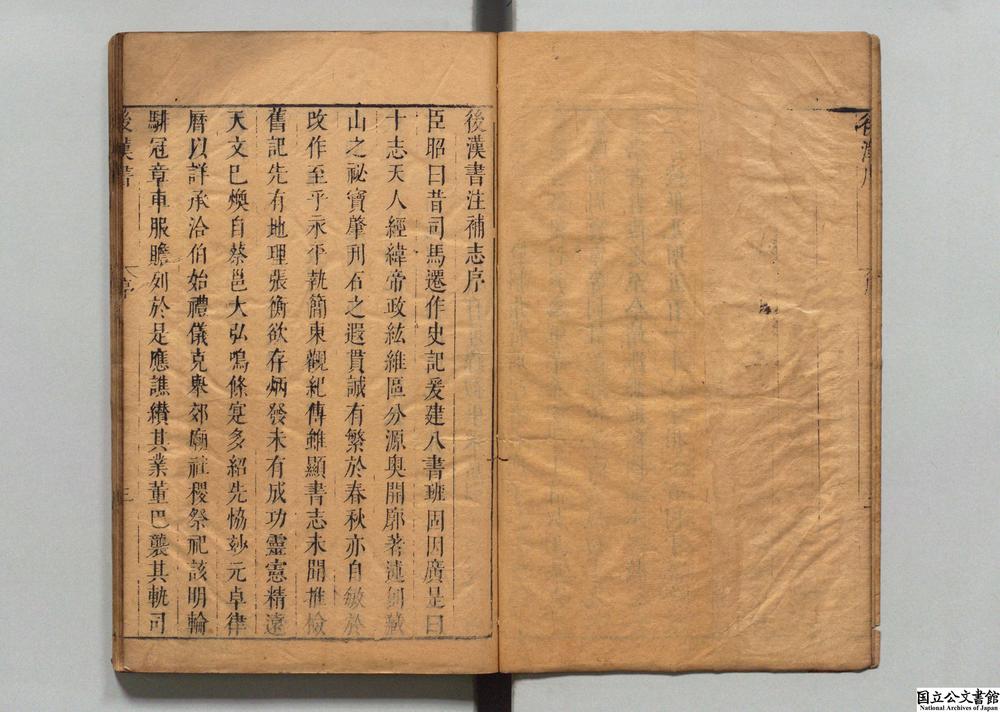 後漢書注補志序
臣昭曰昔司馬遷作史記爰建八書班固因廣是曰
十志天人經緯帝政紘維區分源奧開廓著述創藏
山之祕寶肇刊石之遐貫誠有繁於春秋亦自敏於
改作至乎永平執簡東觀紀傳雖顯書志未聞推檢
舊記先有地理張衡欲存炳發未有成功靈憲精遠
天文巳煥自蔡邕大弘鳴條寔多紹先恊玅元卓律
曆以詳承洽伯始禮儀克舉郊廟社稷祭祀該明輪
騑冠章車服贍列於是應譙纘其業董巴襲其軌司
後漢書
序
三
国立公文書館
National Archives of Japan